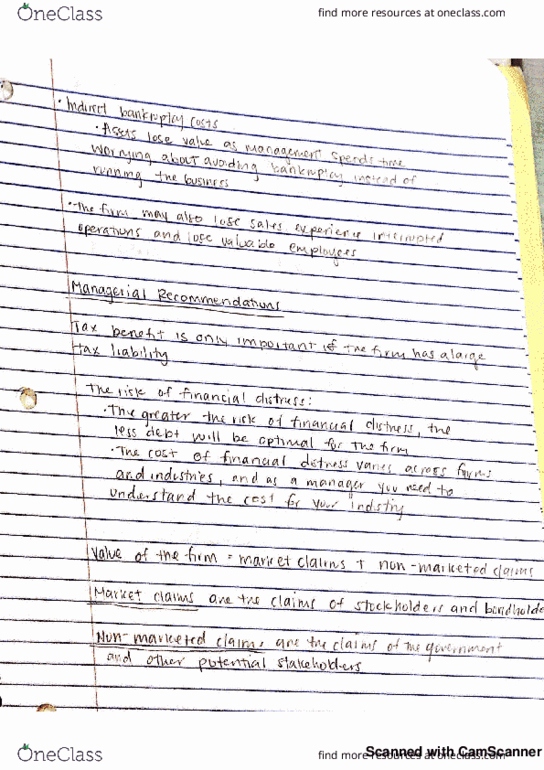 OneClass
find more resources at oneclass.com
• Indirect bankruptcy costs
• Assets lose value as management spends time
worrying about avoiding bankruptcy instead of
running the business
• The firm may also lose sales, experience interrupted
operations and lose valuable employees
Managerial Recommendations
Tax benefit is only important if the firm has a large
tax liability
The risk of financial distress:
• The greater the risk of financial distress, the
less debt will be optimal for the firm
• The cost of financial distress varies across firms
and industries, and as a manager you need to
understand the cost for your industry
Value of the firm = market claims + non-marketed claims
Market claims are the claims of stockholders and bondholde
Non-marketed claims are the claims of the government
and other potential stakeholders
OneClass
find more resources at oneclass.com
Scanned with CamScanner